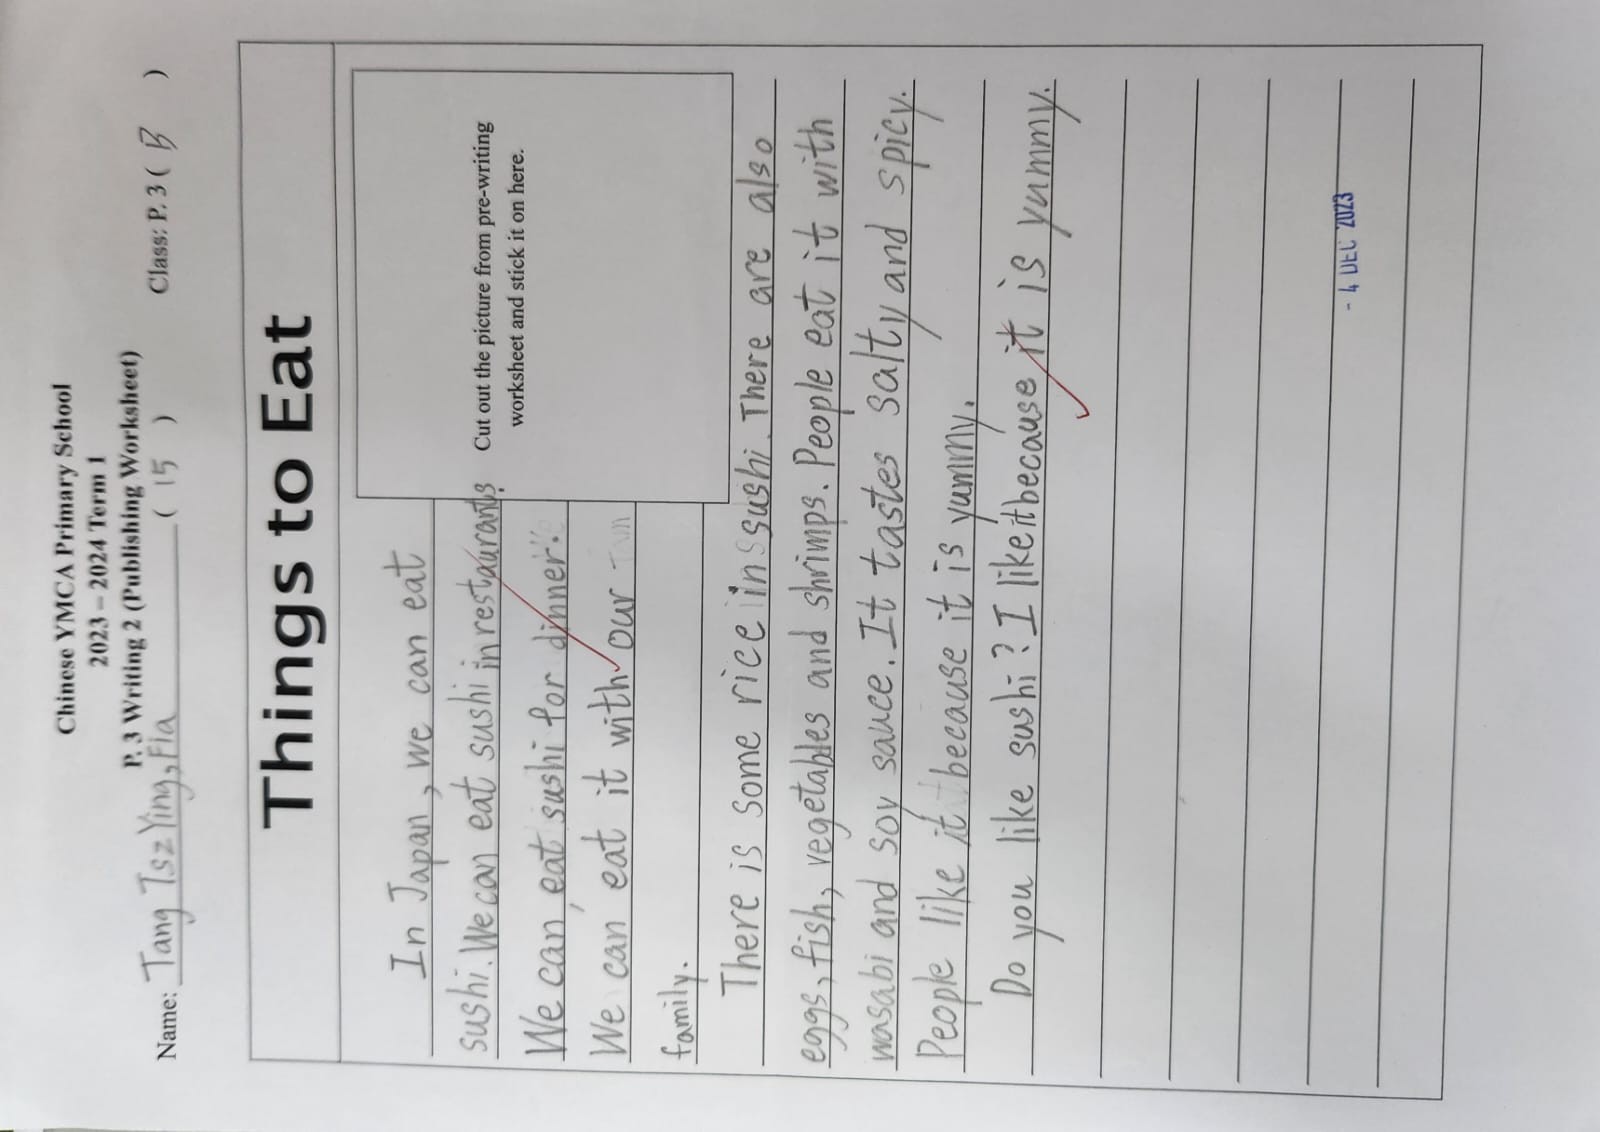 Chinese YMCA Primary School
2023 – 2024 Term 1
P. 3 Writing 2 (Publishing Worksheet)
Name: Tang Tsz Ying, Fla ( 15 ) Class: P. 3 ( B )
Things to Eat
Cut out the picture from pre-writing
worksheet and stick it on here.
In Japan, we can eat
sushi. We can eat sushi in restaurants.
We can eat sushi for dinner.
We can eat it with our
family.
There is some rice in sushi. There are also
eggs, fish, vegetables and shrimps. People eat it with
wasabi and soy sauce. It tastes salty and spicy.
People like it because it is yummy.
Do you like sushi? I like it because it is yummy.
- 4 DEC 2023